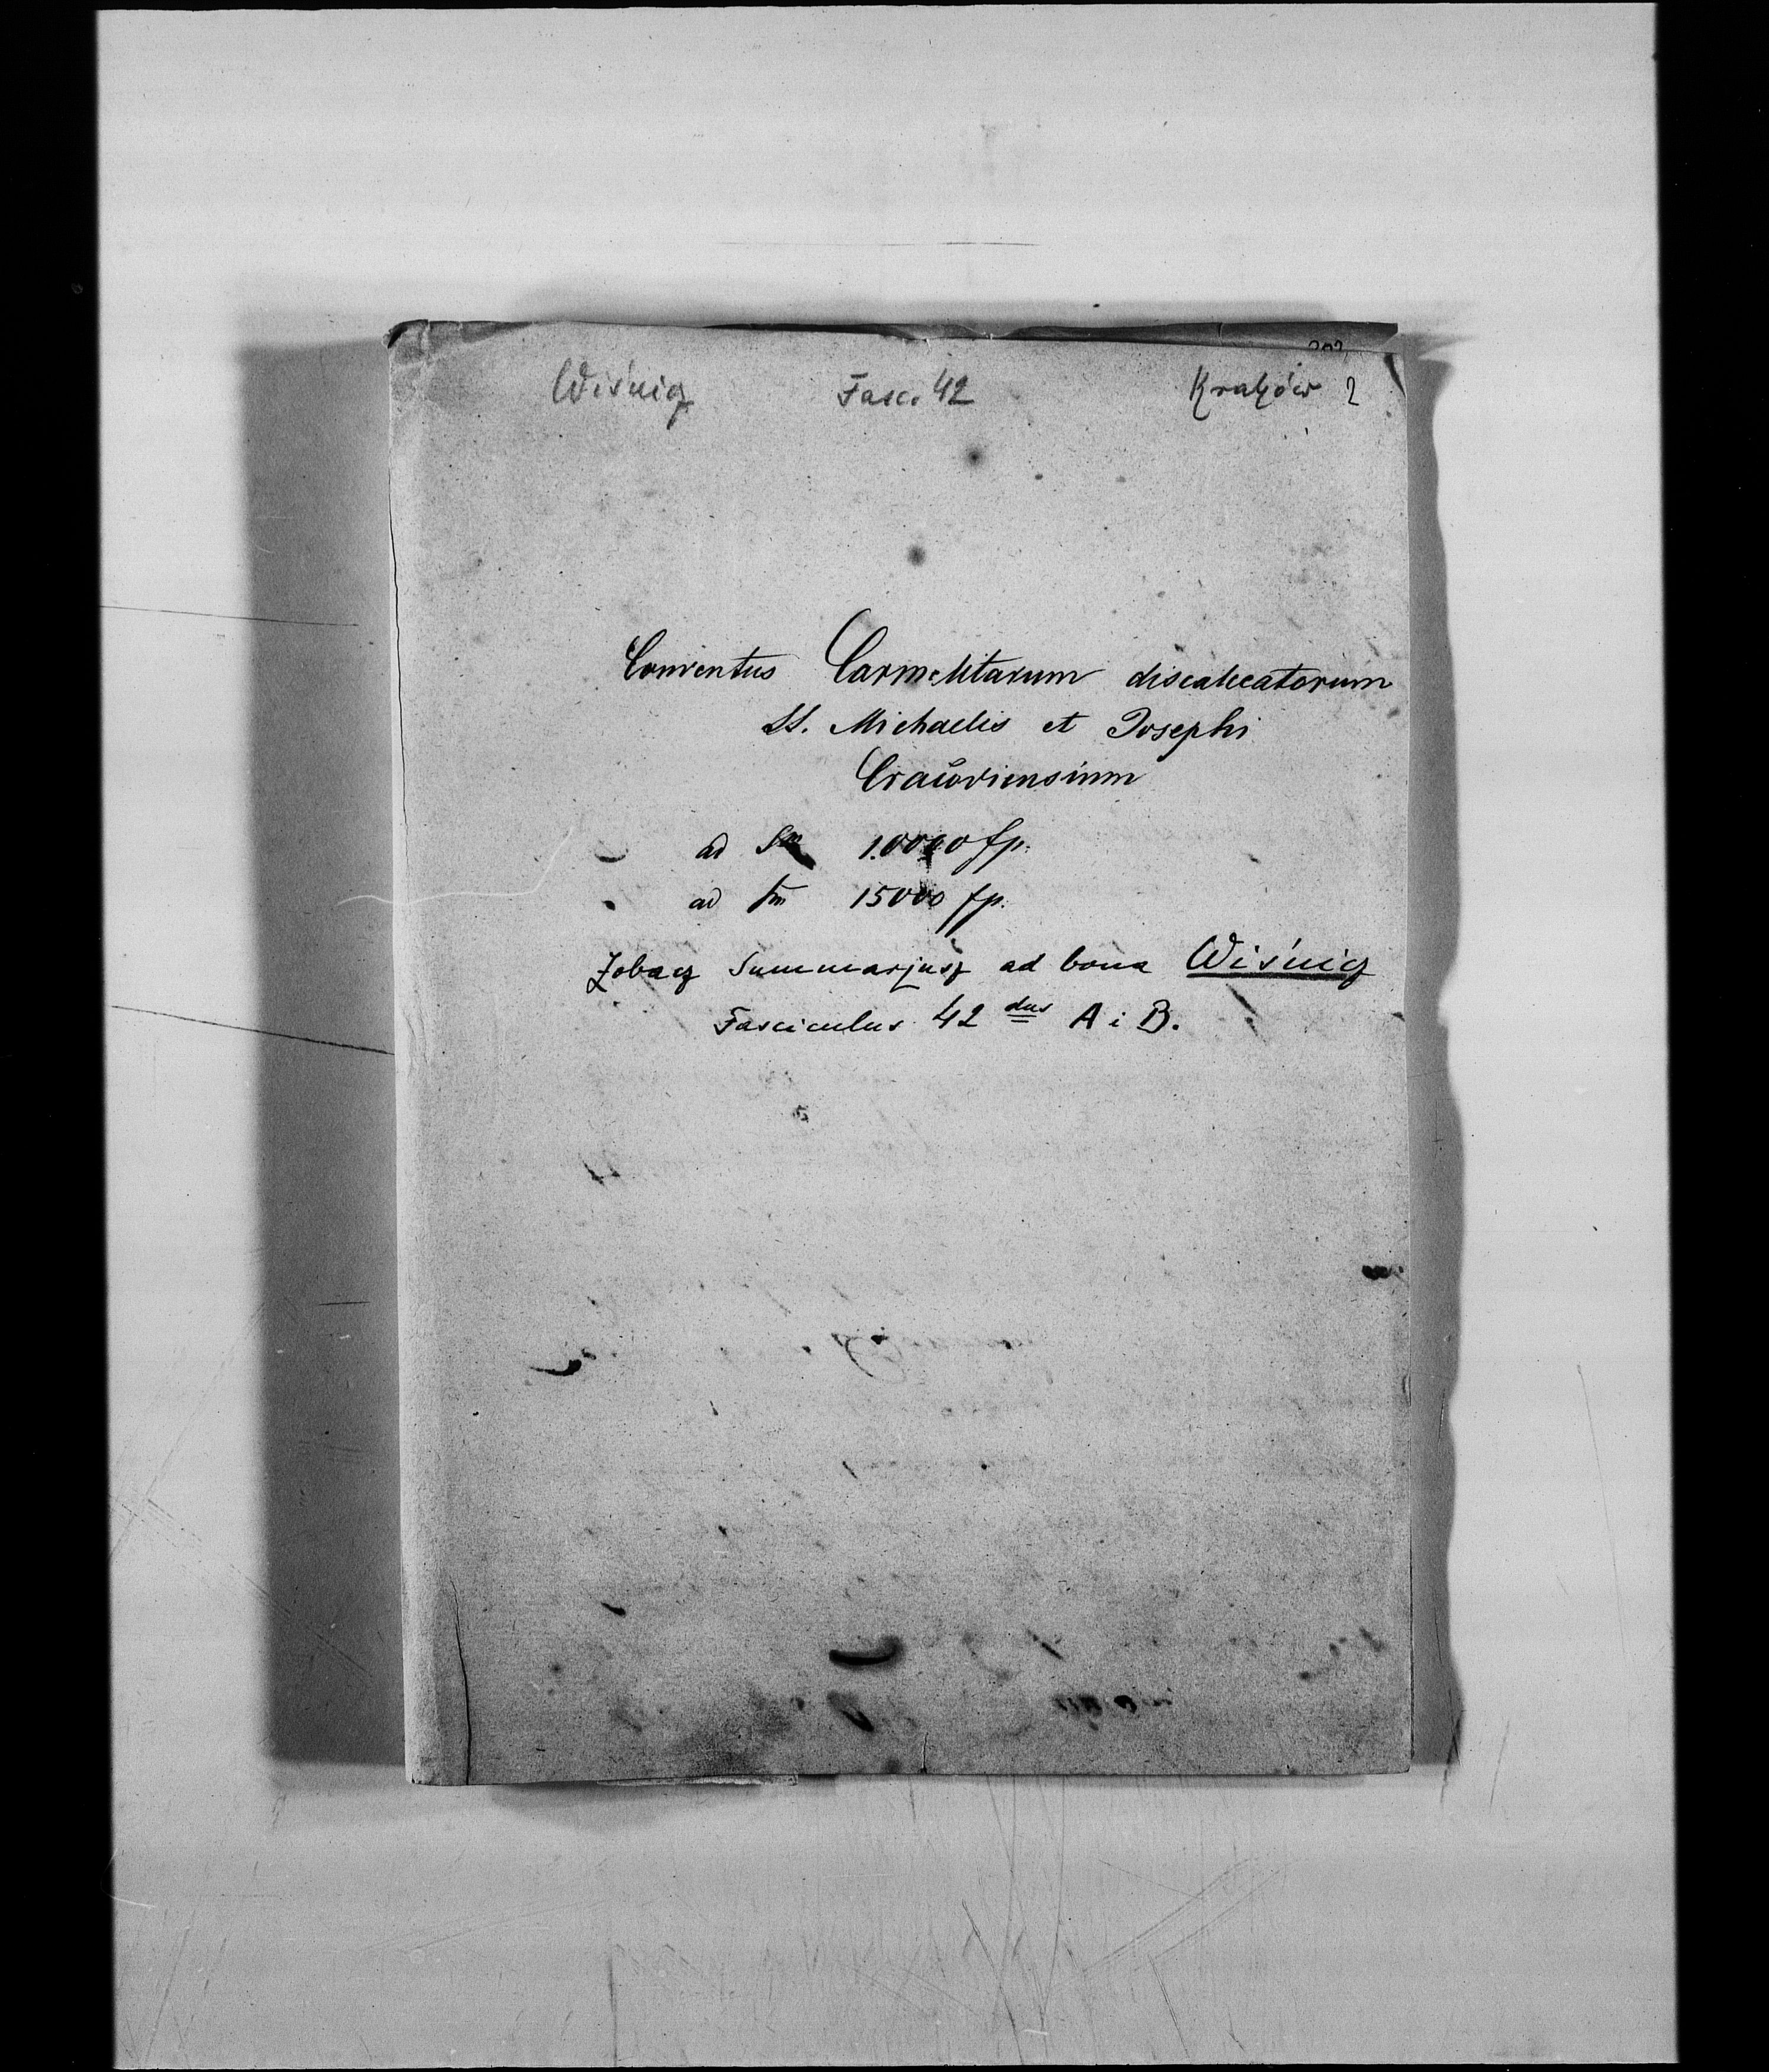 Wiśnicz Fasc. 42 Kraków 2
Conventus Carmelitarum discalceatorum
SS. Michaelis et Josephi
Cracoviensium
ad Sm 10000 fp.
ad Sm 15000 fp.
Zobacz Summarjusz ad bona Wiśnicz
Fasciculus 42 dus A i B.